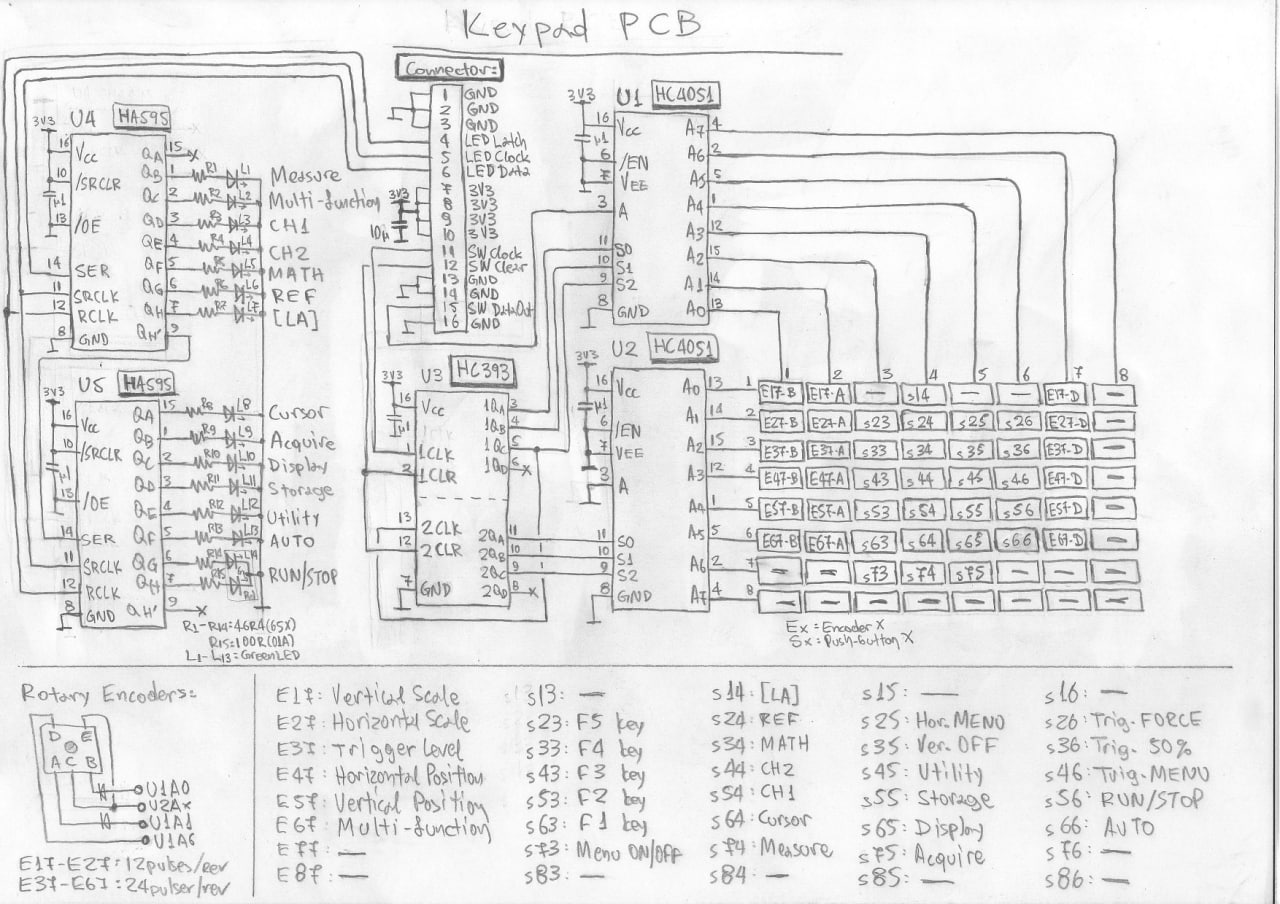 Keypad PCB
Connector:
1 GND
2 GND
3 GND
4 LED Latch
5 LED Clock
6 LED Data
7 3V3
8 3V3
9 3V3
10 3V3
11 SW Clock
12 SW Clear
13 GND
14 GND
15 SW DataOut
16 GND
3V3
10µ
U4 HA595
3V3
16 Vcc QA 15
10 /SRCLR QB 1 R1 L1 Measure
µ1 QC 2 R2 L2 Multi-function
13 /OE QD 3 R3 L3 CH1
QE 4 R4 L4 CH2
14 SER QF 5 R5 L5 MATH
11 SRCLK QG 6 R6 L6 REF
12 RCLK QH 7 R7 L7 [LA]
8 GND QH' 9
U5 HA595
3V3
16 Vcc QA 15 R8 L8 Cursor
10 /SRCLR QB 1 R9 L9 Acquire
µ1 QC 2 R10 L10 Display
13 /OE QD 3 R11 L11 Storage
QE 4 R12 L12 Utility
14 SER QF 5 R13 L13 AUTO
11 SRCLK QG 6 R14 L14
12 RCLK QH 7 R15 RUN/STOP
8 GND QH' 9
R1-R14=46R4(65X)
R15=100R(01A)
L1-L13=GreenLED
U3 HC393
3V3
16 Vcc 1QA 3
µ1 1QB 4
1 1CLK 1QC 5
2 1CLR 1QD 6
13 2CLK 2QA 11
12 2CLR 2QB 10
2QC 9
7 GND 2QD 8
U1 HC4051
3V3
16 Vcc A7 4
µ1 A6 2
6 /EN A5 5
7 VEE A4 1
3 A A3 12
11 S0 A2 15
10 S1 A1 14
9 S2 A0 13
8 GND
U2 HC4051
3V3
16 Vcc A0 13
µ1 A1 14
6 /EN A2 15
7 VEE A3 12
3 A A4 1
11 S0 A5 5
10 S1 A6 2
9 S2 A7 4
8 GND
1 2 3 4 5 6 7 8
1 E17-B E17-A — S14 — — E17-D —
2 E27-B E27-A S23 S24 S25 S26 E27-D —
3 E37-B E37-A S33 S34 S35 S36 E37-D —
4 E47-B E47-A S43 S44 S45 S46 E47-D —
5 E57-B E57-A S53 S54 S55 S56 E57-D —
6 E67-B E67-A S63 S64 S65 S66 E67-D —
7 — — S73 S74 S75 — — —
8 — — — — — — — —
Ex=Encoder X
Sx=Push-button X
Rotary Encoders:
D E
A C B
U1A0
U2Ax
U1A1
U1A6
E17-E27:12pulses/rev
E37-E67:24pulser/rev
E17: Vertical Scale
E27: Horizontal Scale
E37: Trigger Level
E47: Horizontal Position
E57: Vertical Position
E67: Multi-function
E77: —
E87: —
S13: —
S23: F5 key
S33: F4 key
S43: F3 key
S53: F2 key
S63: F1 key
S73: Menu ON/OFF
S83: —
S14: [LA]
S24: REF
S34: MATH
S44: CH2
S54: CH1
S64: Cursor
S74: Measure
S84: —
S15: —
S25: Hor. MENU
S35: Ver. OFF
S45: Utility
S55: Storage
S65: Display
S75: Acquire
S85: —
S16: —
S26: Trig. FORCE
S36: Trig. 50%
S46: Trig. MENU
S56: RUN/STOP
S66: AUTO
S76: —
S86: —